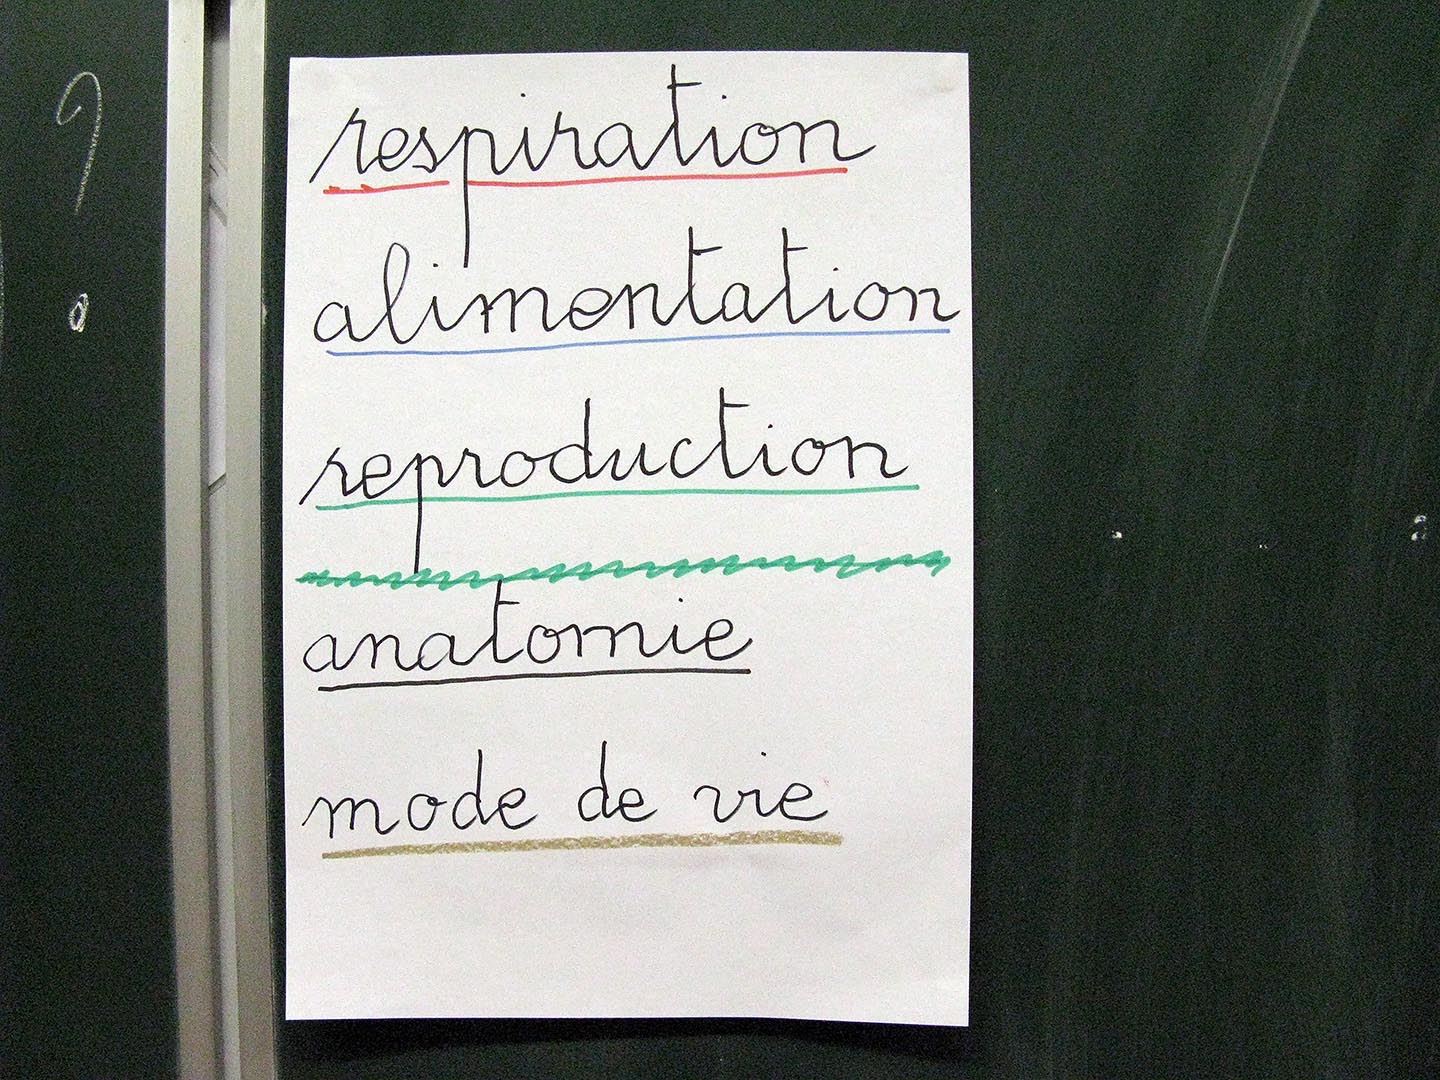 ?
respiration
alimentation
reproduction
anatomie
mode de vie